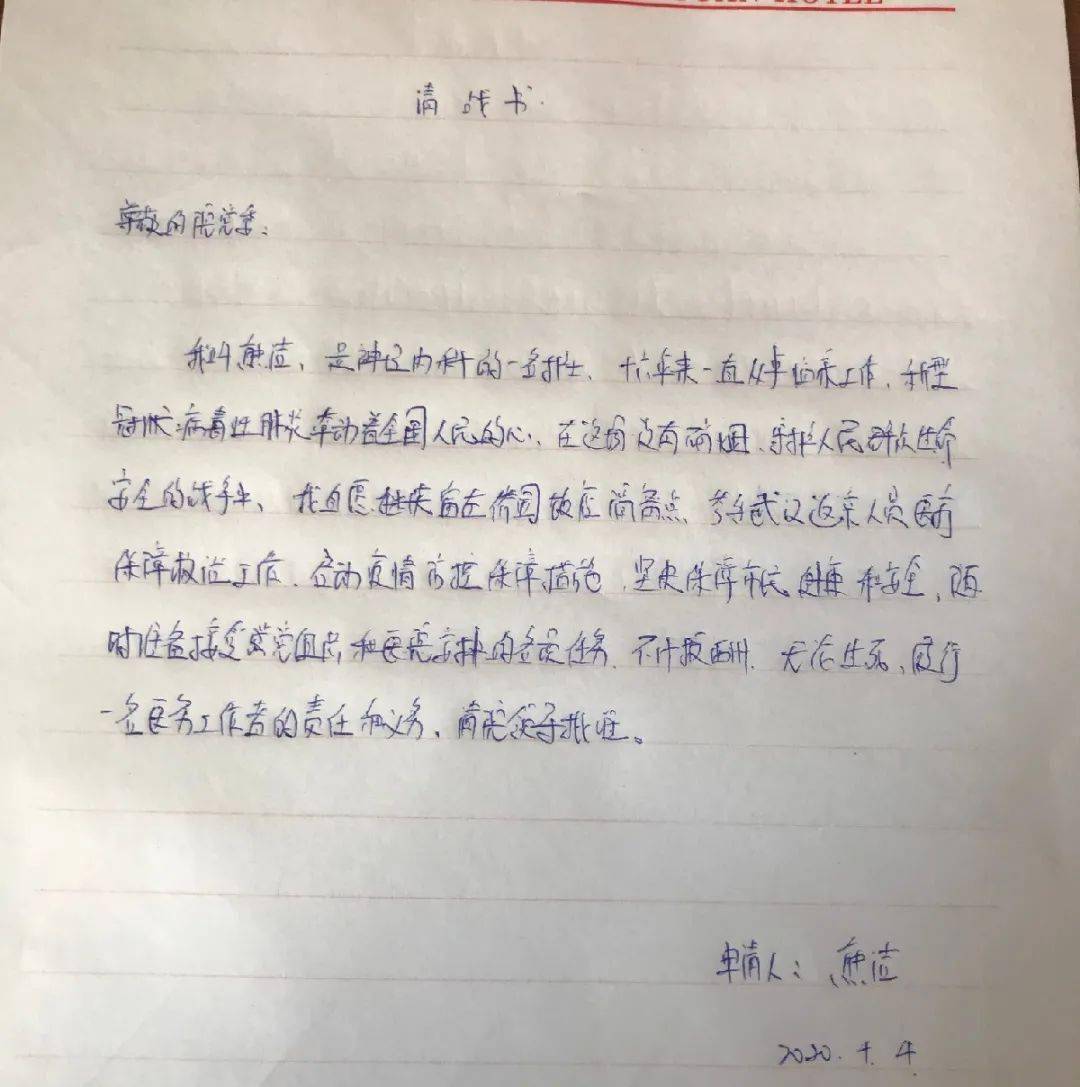 请战书.
尊敬的院党委:
我叫熊洁、是神经内科的一名护士、十六年来一直从事临床工作.新型
冠状病毒性肺炎牵动着全国人民的心、在这场没有硝烟、守护人民群众生命
安全的战争中、我自愿继续留在 点、参与武汉返京人员医疗
保障救治工作、 疫情防控保障措施、坚决保障市民健康和安全,随
时准备接受党组织和医院安排的各项任务.不计报酬.无论生死、履行
一名医务工作者的责任和义务、请院领导批准。
申请人:熊洁
2020. 4